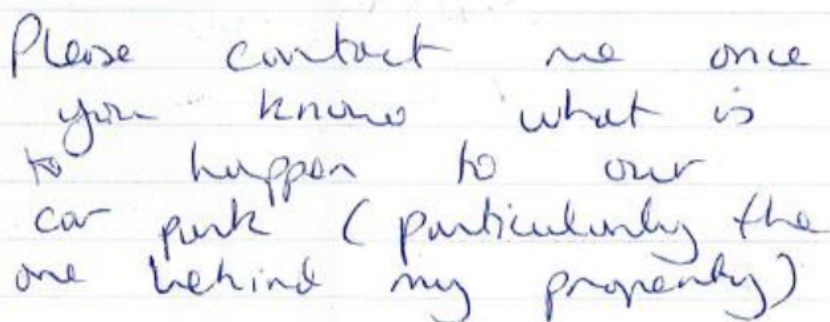 Please contact me once
you know what is
to happen to our
car park (particularly the
one behind my property)